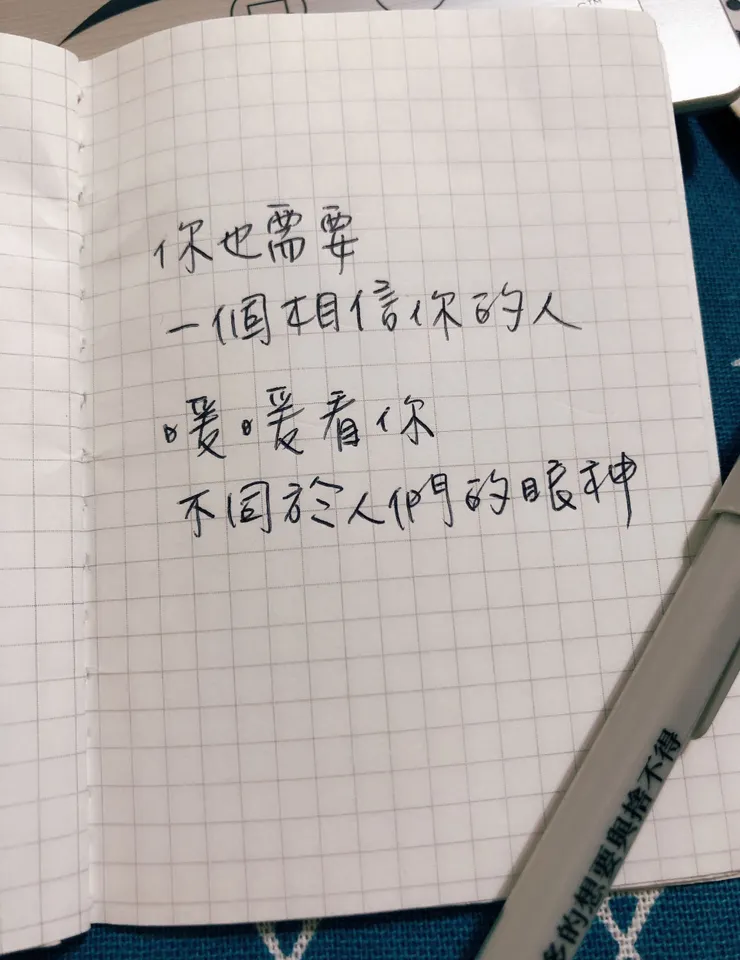 你也需要
一個相信你的人
暖暖看你
不同於人們的眼神
的想要與捨不得